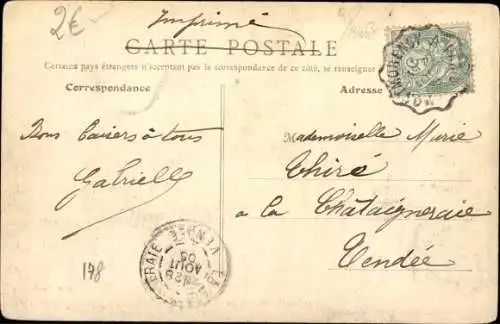 2€
Imprimé
CARTE POSTALE
Certains pays étrangers n'acceptant pas la correspondance de ce côté, se renseigner
Correspondance
Adresse
Bons baisers à tous
Gabrielle
Mademoiselle Marie
Thiré
à la Châtaigneraie
Vendée
VENDÉE
28
AOUT
05
178